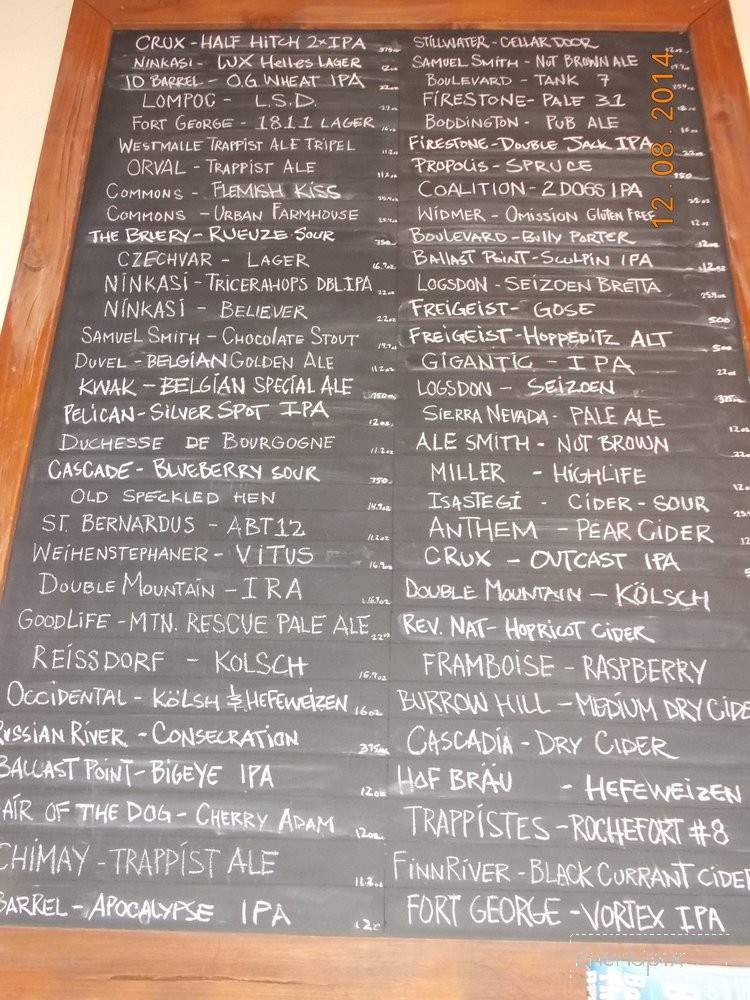 CRUX - HALF HITCH 2x IPA 375ml
NINKASI - LUX Helles LAGER 12oz
10 BARREL - O.G. WHEAT IPA 22oz
LOMPOC - L.S.D. 22oz
FORT GEORGE - 1811 LAGER 16oz
WESTMALLE TRAPPIST ALE TRIPEL 11.2oz
ORVAL - TRAPPIST ALE 11.2oz
COMMONS - FLEMISH KISS
COMMONS - URBAN FARMHOUSE
THE BRUERY - RUEUZE SOUR 750
CZECHVAR - LAGER 16.9oz
NINKASI - TRICERAHOPS DBL IPA 22oz
NINKASI - BELIEVER 22oz
SAMUEL SMITH - CHOCOLATE STOUT
DUVEL - BELGIAN GOLDEN ALE 11.2oz
KWAK - BELGIAN SPECIAL ALE 750ml
PELICAN - SILVER SPOT IPA 12oz
DUCHESSE DE BOURGOGNE 11.2oz
CASCADE - BLUEBERRY SOUR 750
OLD SPECKLED HEN 14.9oz
ST. BERNARDUS - ABT 12 11.2oz
WEIHENSTEPHANER - VITUS 16.9oz
DOUBLE MOUNTAIN - IRA 16.9oz
GOODLIFE - MTN. RESCUE PALE ALE 22oz
REISSDORF - KOLSCH 16.9oz
OCCIDENTAL - KÖLSH & HEFEWEIZEN 16oz
RUSSIAN RIVER - CONSECRATION 375ml
BALLAST POINT - BIGEYE IPA 12oz
AIR OF THE DOG - CHERRY ADAM 12oz
CHIMAY - TRAPPIST ALE 11.2oz
BARREL - APOCALYPSE IPA 12oz
STILLWATER - CELLAR DOOR 12oz
SAMUEL SMITH - NUT BROWN ALE
BOULEVARD - TANK 7
FIRESTONE - PALE 31
BODDINGTON - PUB ALE 16oz
FIRESTONE - DOUBLE JACK IPA 22oz
PROPOLIS - SPRUCE 750
COALITION - 2 DOGS IPA 22oz
WIDMER - OMISSION GLUTEN FREE 12oz
BOULEVARD - BULLY PORTER 12oz
BALLAST POINT - SCULPIN IPA 12oz
LOGSDON - SEIZOEN BRETTA
FREIGEIST - GOSE 500
FREIGEIST - HOPPEDITZ ALT 500
GIGANTIC - IPA 22oz
LOGSDON - SEIZOEN
SIERRA NEVADA - PALE ALE 12oz
ALE SMITH - NUT BROWN 22oz
MILLER - HIGHLIFE 12oz
ISASTEGI - CIDER - SOUR
ANTHEM - PEAR CIDER 12
CRUX - OUTCAST IPA
DOUBLE MOUNTAIN - KÖLSCH
REV. NAT - HOPRICOT CIDER
FRAMBOISE - RASPBERRY
BURROW HILL - MEDIUM DRY CIDE
CASCADIA - DRY CIDER
HOF BRÄU - HEFEWEIZEN
TRAPPISTES - ROCHEFORT #8
FINNRIVER - BLACK CURRANT CIDER
FORT GEORGE - VORTEX IPA
12.08.2014